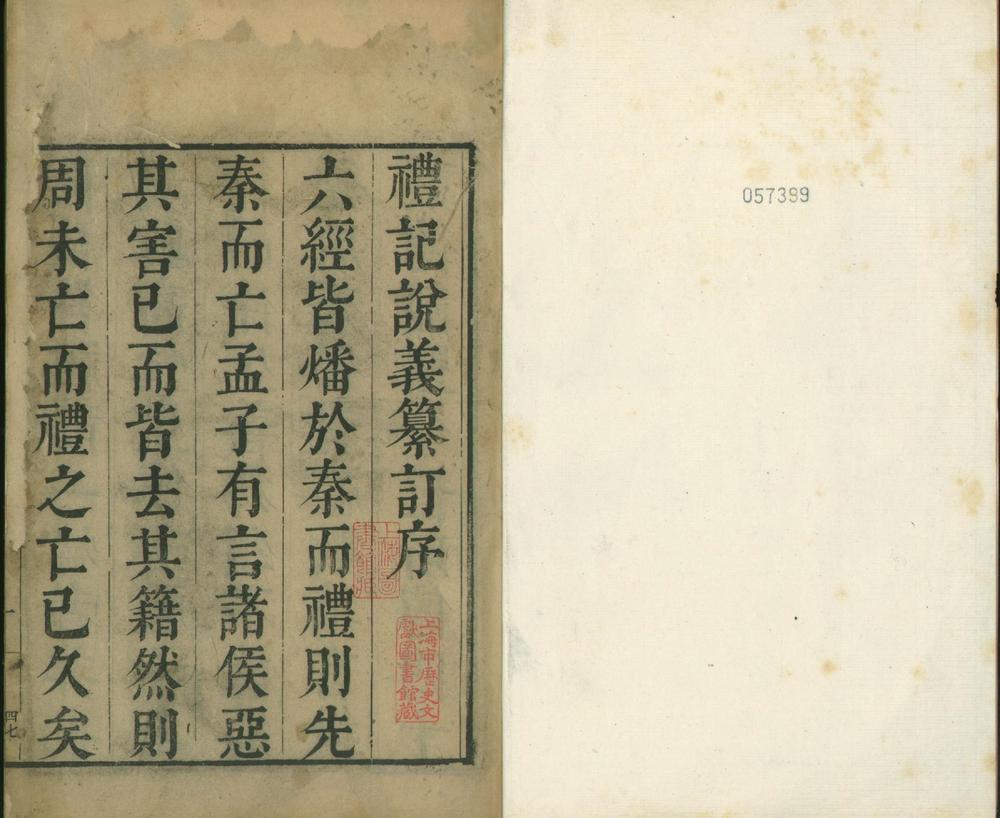 057399
禮記說義纂訂序
六經皆燔於秦而禮則先
秦而亡孟子有言諸侯惡
其害已而皆去其籍然則
周未亡而禮之亡已久矣
上海圖
書館藏
上海市歷史文
獻圖書館藏
一
四七